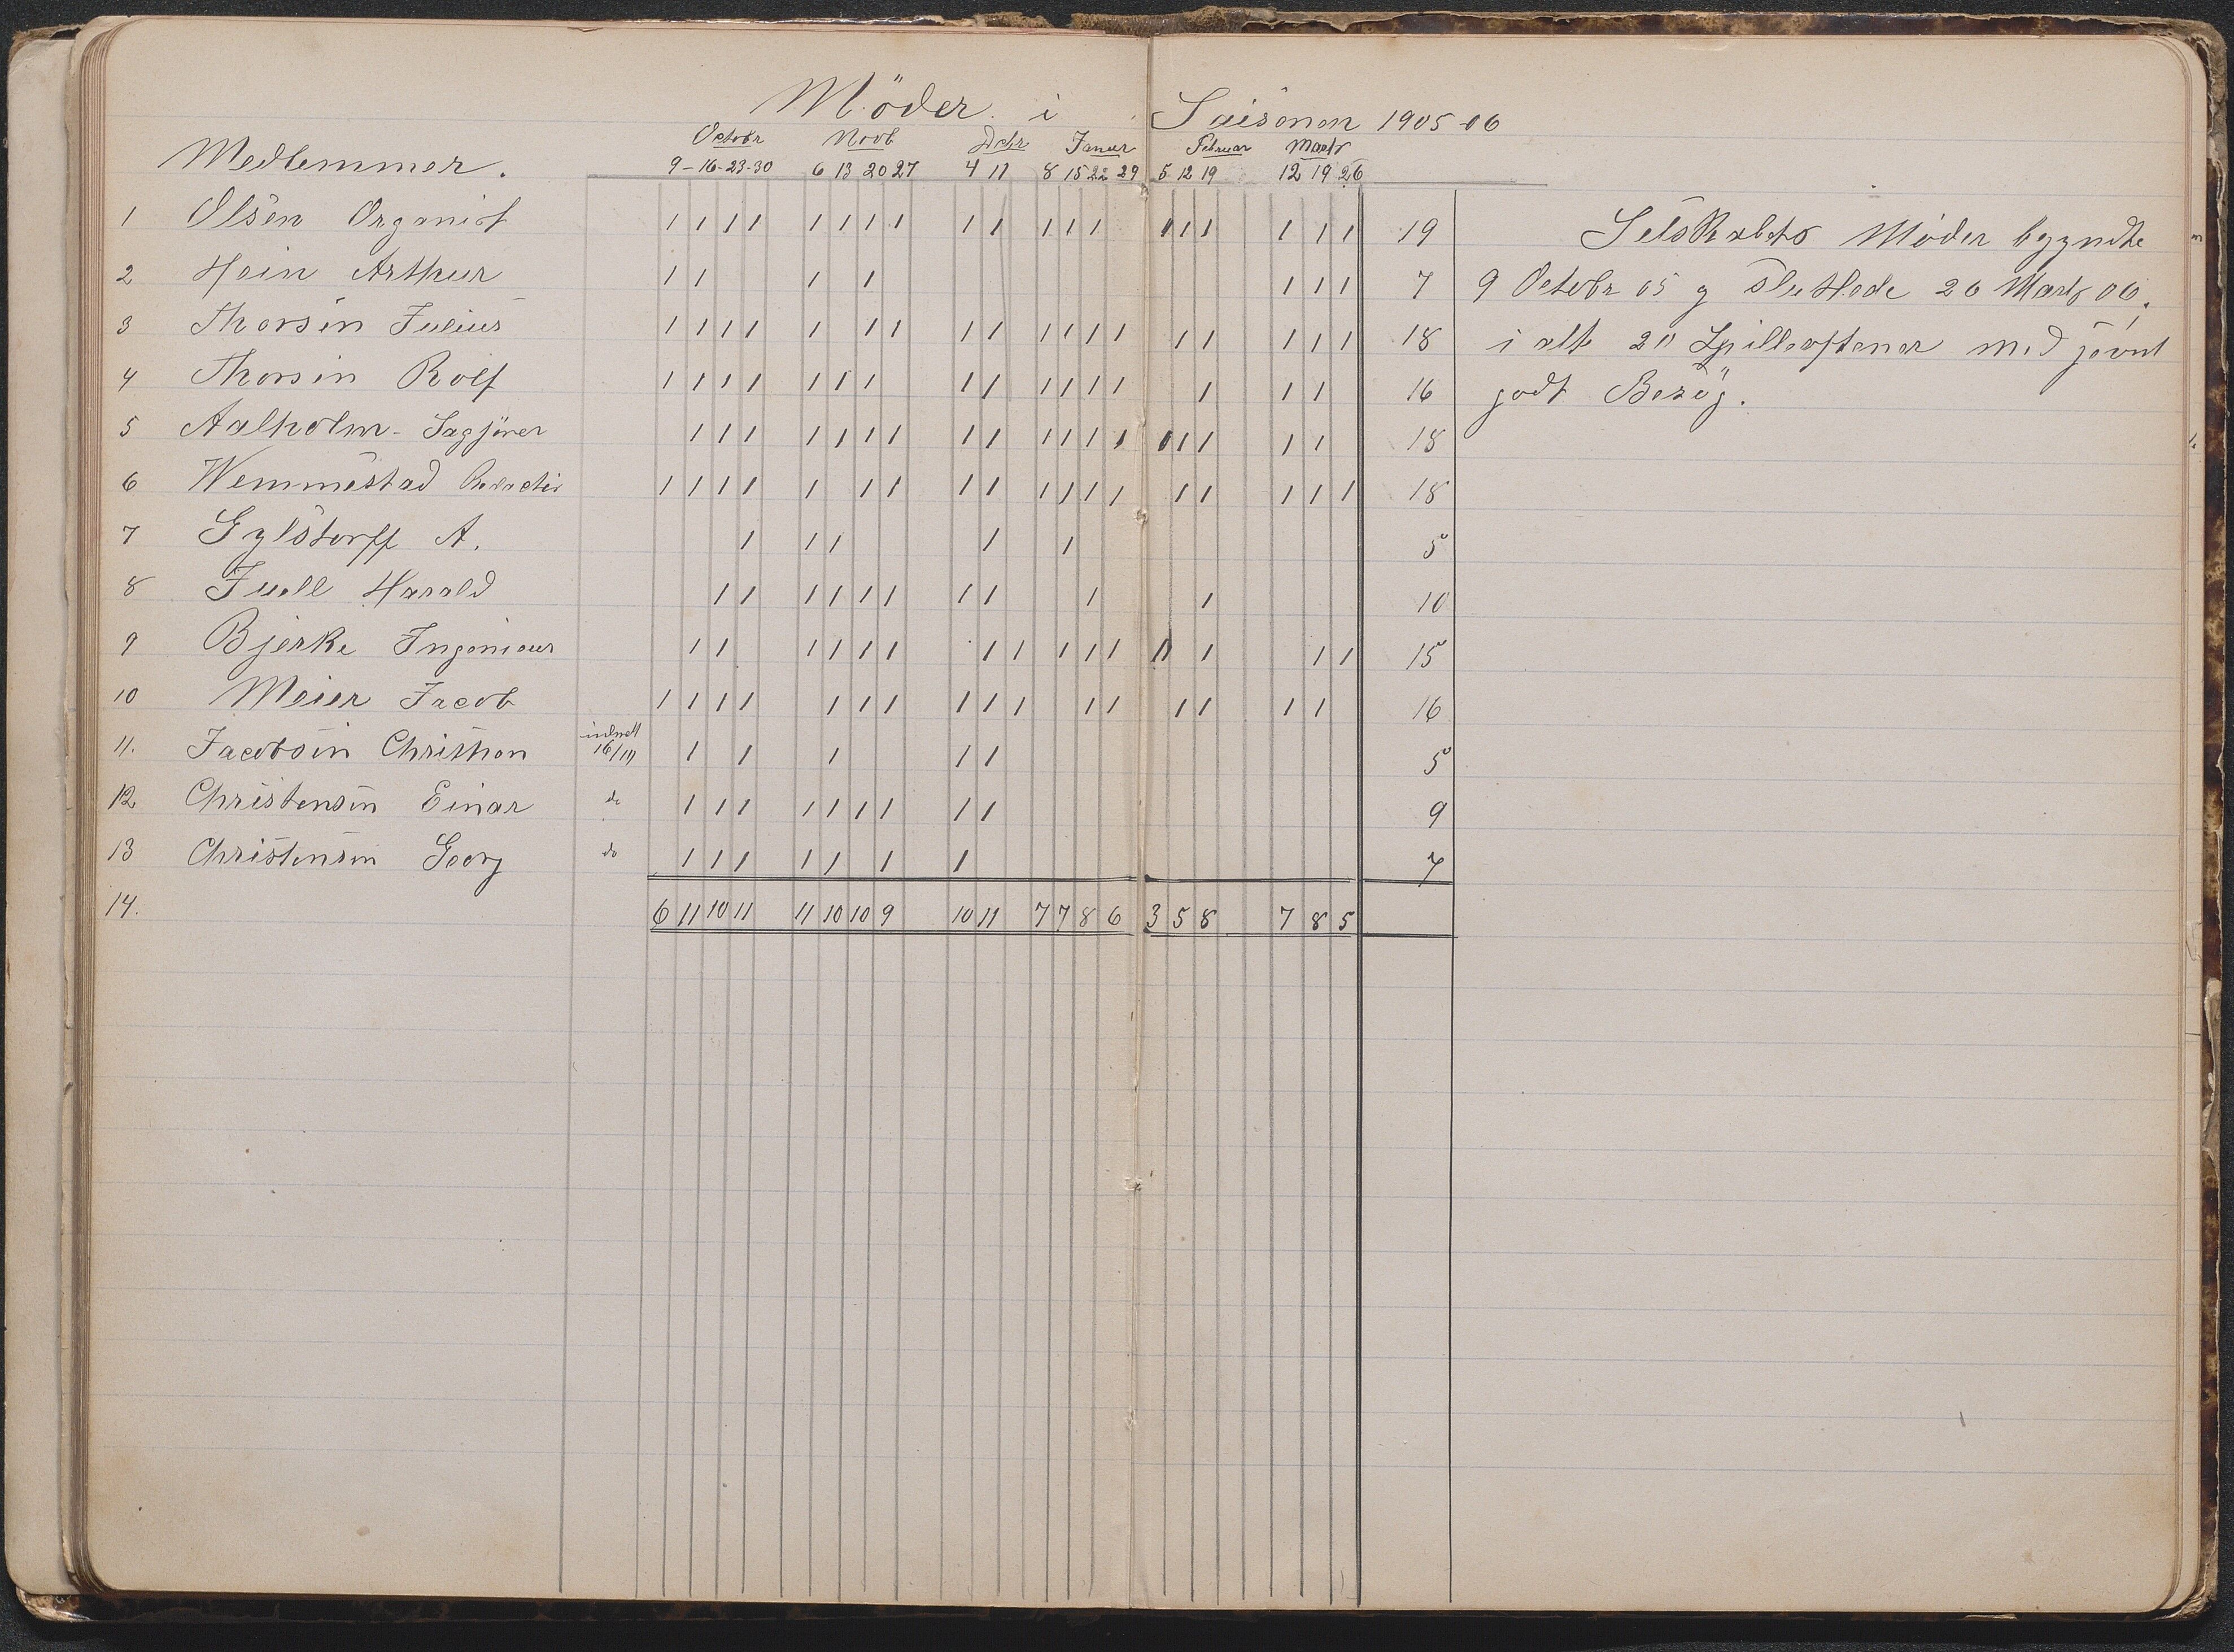 Möder i Saisonen 1905-06
Octobr Novb Debr Januar Februar Marts
Medlemmer. 9-16-23-30 6 13 20 27 4 11 8 15 22 29 5 12 19 12 19 26
1 Olsen Organist 1 1 1 1 1 1 1 1 1 1 1 1 1 1 1 1 1 1 1 19
2 Hein Arthur 1 1 1 1 1 1 1 7
3 Thorsen Julius 1 1 1 1 1 1 1 1 1 1 1 1 1 1 1 1 1 1 18
4 Thorsen Rolf 1 1 1 1 1 1 1 1 1 1 1 1 1 1 1 1 16
5 Aalholm - Sagfører 1 1 1 1 1 1 1 1 1 1 1 1 1 1 1 1 1 1 18
6 Wemmestad Redactør 1 1 1 1 1 1 1 1 1 1 1 1 1 1 1 1 1 1 18
7 Gylstorff A. 1 1 1 1 1 5
8 Juell Harald 1 1 1 1 1 1 1 1 1 1 10
9 Bjerke Ingeniør 1 1 1 1 1 1 1 1 1 1 1 1 1 1 1 15
10 Meier Jacob 1 1 1 1 1 1 1 1 1 1 1 1 1 1 1 1 16
11. Jacobsen Christian indmeldt 16/10 1 1 1 1 1 5
12 Christensen Einar do 1 1 1 1 1 1 1 1 1 9
13 Christensen Georg do 1 1 1 1 1 1 1 7
14. 6 11 10 11 11 10 10 9 10 11 7 7 8 6 3 5 8 7 8 5
Selskabets Möder begyndte
9 Octobr 05 og sluttede 26 Marts 06,
i alt 20 Spilleaftener med jævnt
godt Besøg.